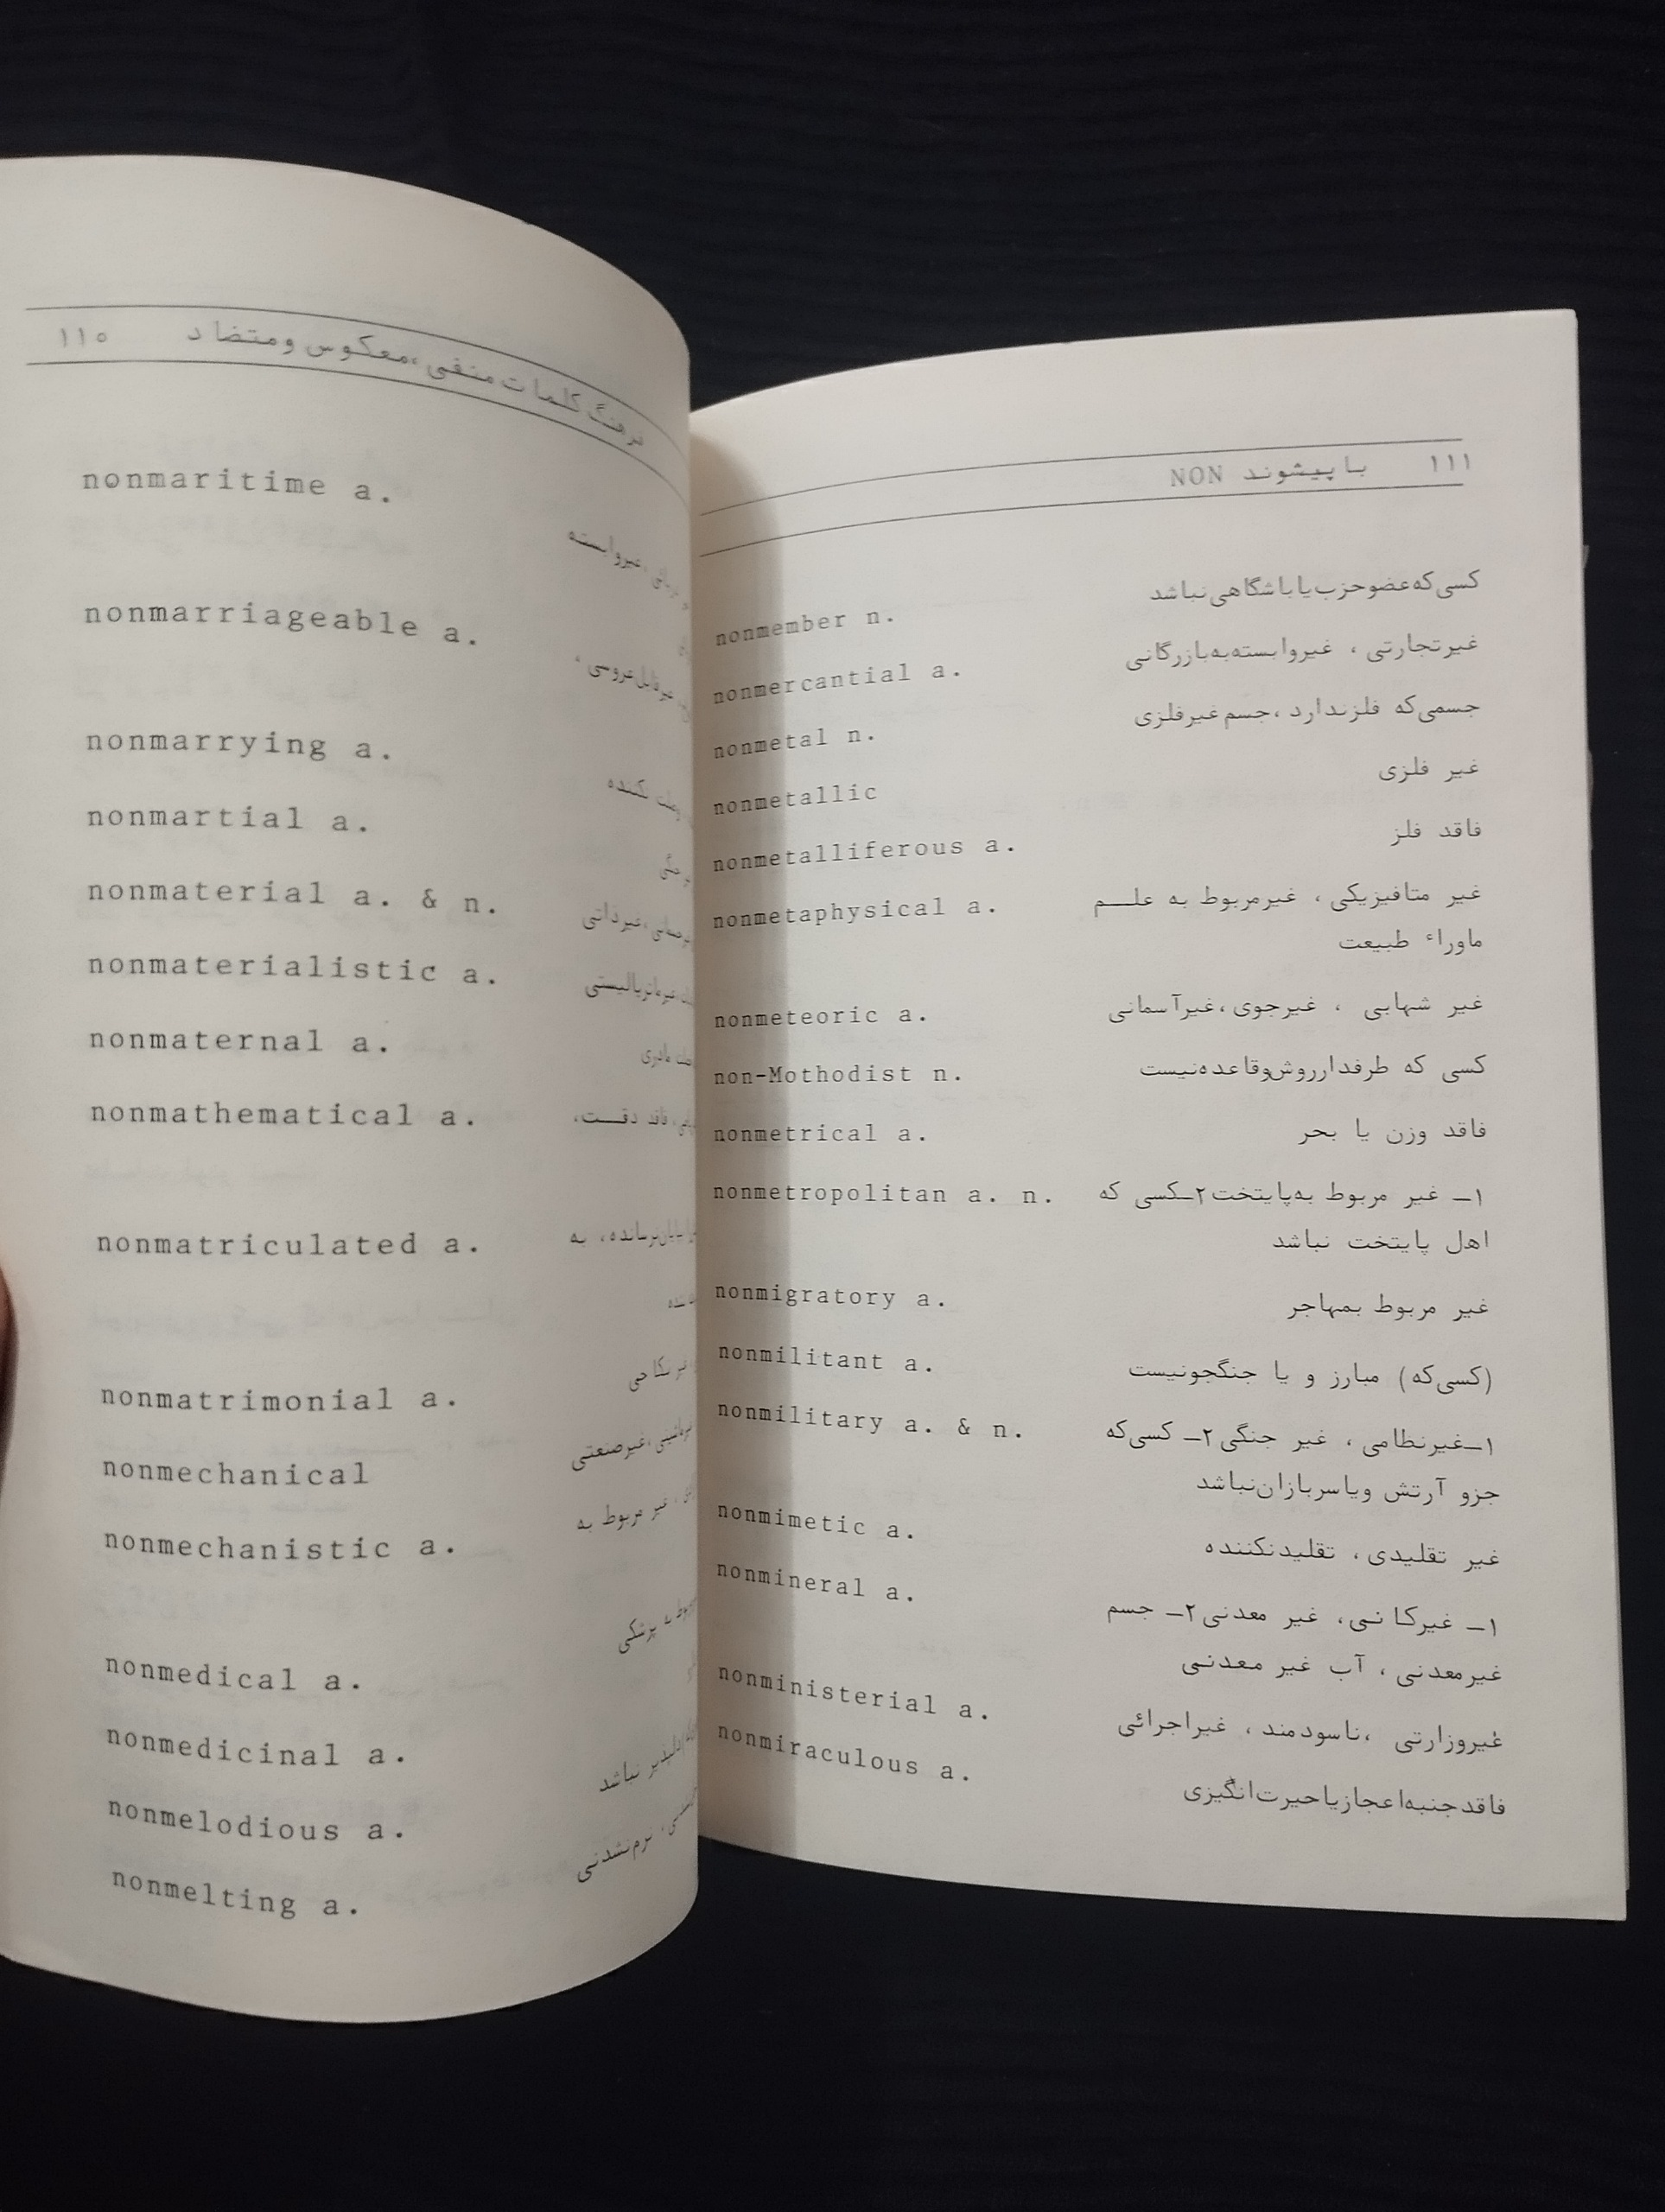 ۱۱۰ فرهنگ کلمات منفی، معکوس و متضاد
nonmaritime a. غیروابسته
nonmarriageable a. غیرقابل عروسی ،
nonmarrying a. نکننده
nonmartial a.
nonmaterial a. & n. غیرذاتی
nonmaterialistic a. غیرماتریالیستی
nonmaternal a. مادری
nonmathematical a. فاقد دقـــت،
nonmatriculated a. بپایان نرسانده، به
شده
nonmatrimonial a. غیر نکاحی
nonmechanical غیرصنعتی
nonmechanistic a. غیر مربوط به
nonmedical a. مربوط به پزشکی
nonmedicinal a.
nonmelodious a. دلپذیر نباشد
nonmelting a. نرم نشدنی
۱۱۱ با پیشوند NON
nonmember n. کسی که عضو حزب یا باشگاهی نباشد
nonmercantial a. غیرتجارتی ، غیروابسته به بازرگانی
nonmetal n. جسمی که فلز ندارد ،جسم غیرفلزی
nonmetallic غیر فلزی
nonmetalliferous a. فاقد فلز
nonmetaphysical a. غیر متافیزیکی ، غیرمربوط به علـــم
ماوراء طبیعت
nonmeteoric a. غیر شهابی ، غیرجوی ،غیرآسمانی
non-Mothodist n. کسی که طرفدار روش و قاعده نیست
nonmetrical a. فاقد وزن یا بحر
nonmetropolitan a. n. ۱ــ غیر مربوط به پایتخت ۲ــ کسی که
اهل پایتخت نباشد
nonmigratory a. غیر مربوط بمهاجر
nonmilitant a. (کسی که) مبارز و یا جنگجو نیست
nonmilitary a. & n. ۱ــ غیرنظامی ، غیر جنگی ۲ــ کسی که
جزو آرتش و یا سربازان نباشد
nonmimetic a. غیر تقلیدی ، تقلید نکننده
nonmineral a. ۱ــ غیرکانی، غیر معدنی ۲ــ جسم
غیرمعدنی ، آب غیر معدنی
nonministerial a. غیروزارتی ،ناسودمند ، غیراجرائی
nonmiraculous a. فاقد جنبه اعجاز یا حیرت انگیزی